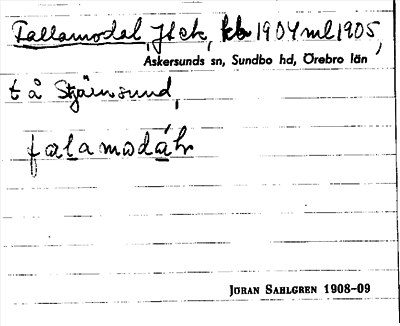 Fallamodal, Jfek, kbr 1904 ml 1905,
Askersunds sn, Sundbo hd, Örebro län
t å Stjärnsund,
falamodáhr
JÖRAN SAHLGREN 1908-09